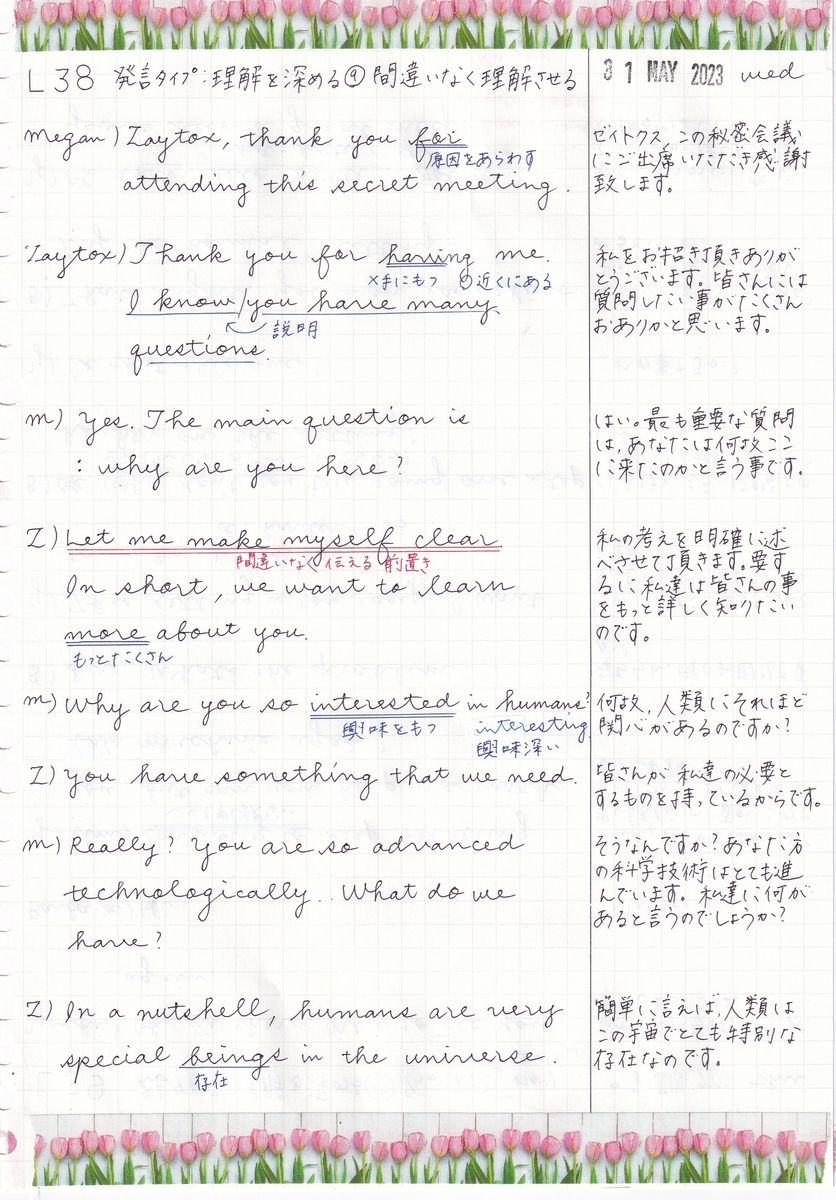 L38 発言タイプ:理解を深める⑨間違いなく理解させる
31 MAY 2023 wed
Megan) Zaytox, thank you for
原因をあらわす
attending this secret meeting.
ゼイトクス、この秘密会議
にご出席いただき感謝
致します。
Zaytox) Thank you for having me.
×手にもつ ○近くにある
I know/you have many
説明
questions.
私をお招き頂きありが
とうございます。皆さんには
質問したい事がたくさん
おありかと思います。
m) Yes. The main question is
: why are you here?
はい。最も重要な質問
は、あなたは何故ここ
に来たのかと言う事です。
Z) Let me make myself clear.
間違いなく伝える前置き
In short, we want to learn
more about you.
もっとたくさん
私の考えを明確に述
べさせて頂きます。要す
るに私達は皆さんの事
をもっと詳しく知りたい
のです。
m) Why are you so interested in humans?
興味をもつ
interesting
興味深い
何故、人類にそれほど
関心があるのですか?
Z) You have something that we need.
皆さんが私達の必要と
するものを持っているからです。
m) Really? You are so advanced
technologically.. What do we
have?
そうなんですか?あなた方
の科学技術はとても進
んでいます。私達に何が
あると言うのでしょうか?
Z) In a nutshell, humans are very
special beings in the universe.
存在
簡単に言えば、人類は
この宇宙でとても特別な
存在なのです。